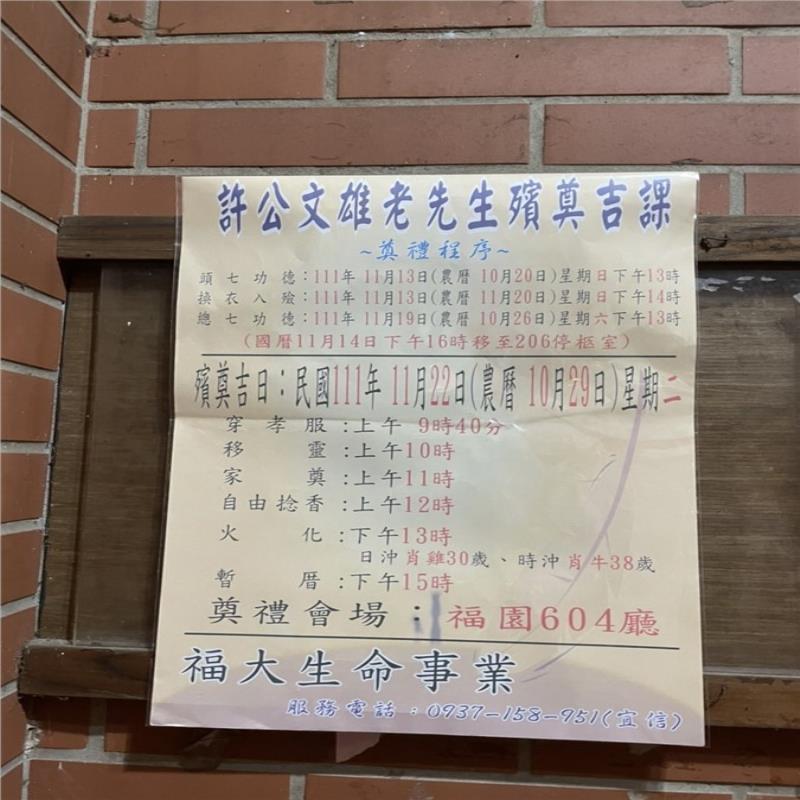 許公文雄老先生殯奠吉課
~奠禮程序~
頭七功德:111年 11月13日(農曆 10月20日)星期日下午13時
換衣入殮:111年 11月13日(農曆 11月20日)星期日下午14時
總七功德:111年 11月19日(農曆 10月26日)星期六下午13時
(國曆11月14日下午16時移至206停柩室)
殯奠吉日:民國111年 11月22日(農曆 10月29日)星期二
穿孝服:上午 9時40分
移靈:上午10時
家奠:上午11時
自由捻香:上午12時
火化:下午13時
日沖肖雞30歲、時沖肖牛38歲
暫厝:下午15時
奠禮會場:福園604廳
福大生命事業
服務電話:0937-158-951(宜信)